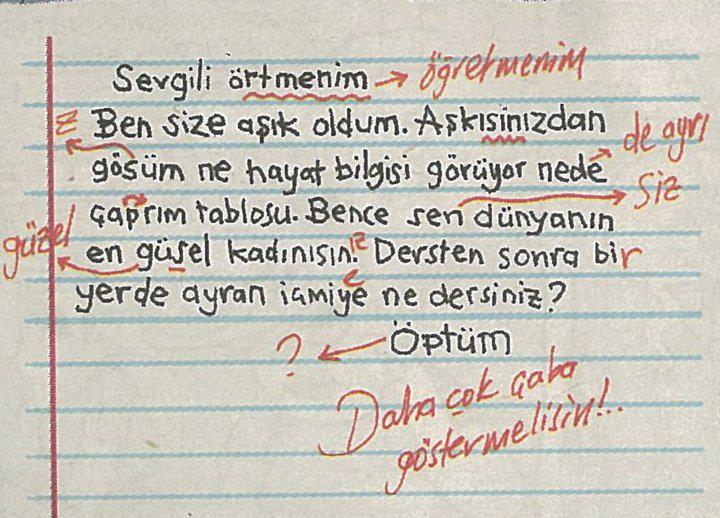 Sevgili örtmenim → öğretmenim
z Ben size aşık oldum. Aşkısinızdan
de ayrı
gösüm ne hayat bilgisi görüyor nede
siz
çaprım tablosu. Bence sen dünyanın
güzel
en güsel kadınısın.ız Dersten sonra bir
yerde ayran içmiye e ne dersiniz?
? ← Öptüm
Daha çok çaba
göstermelisin!..